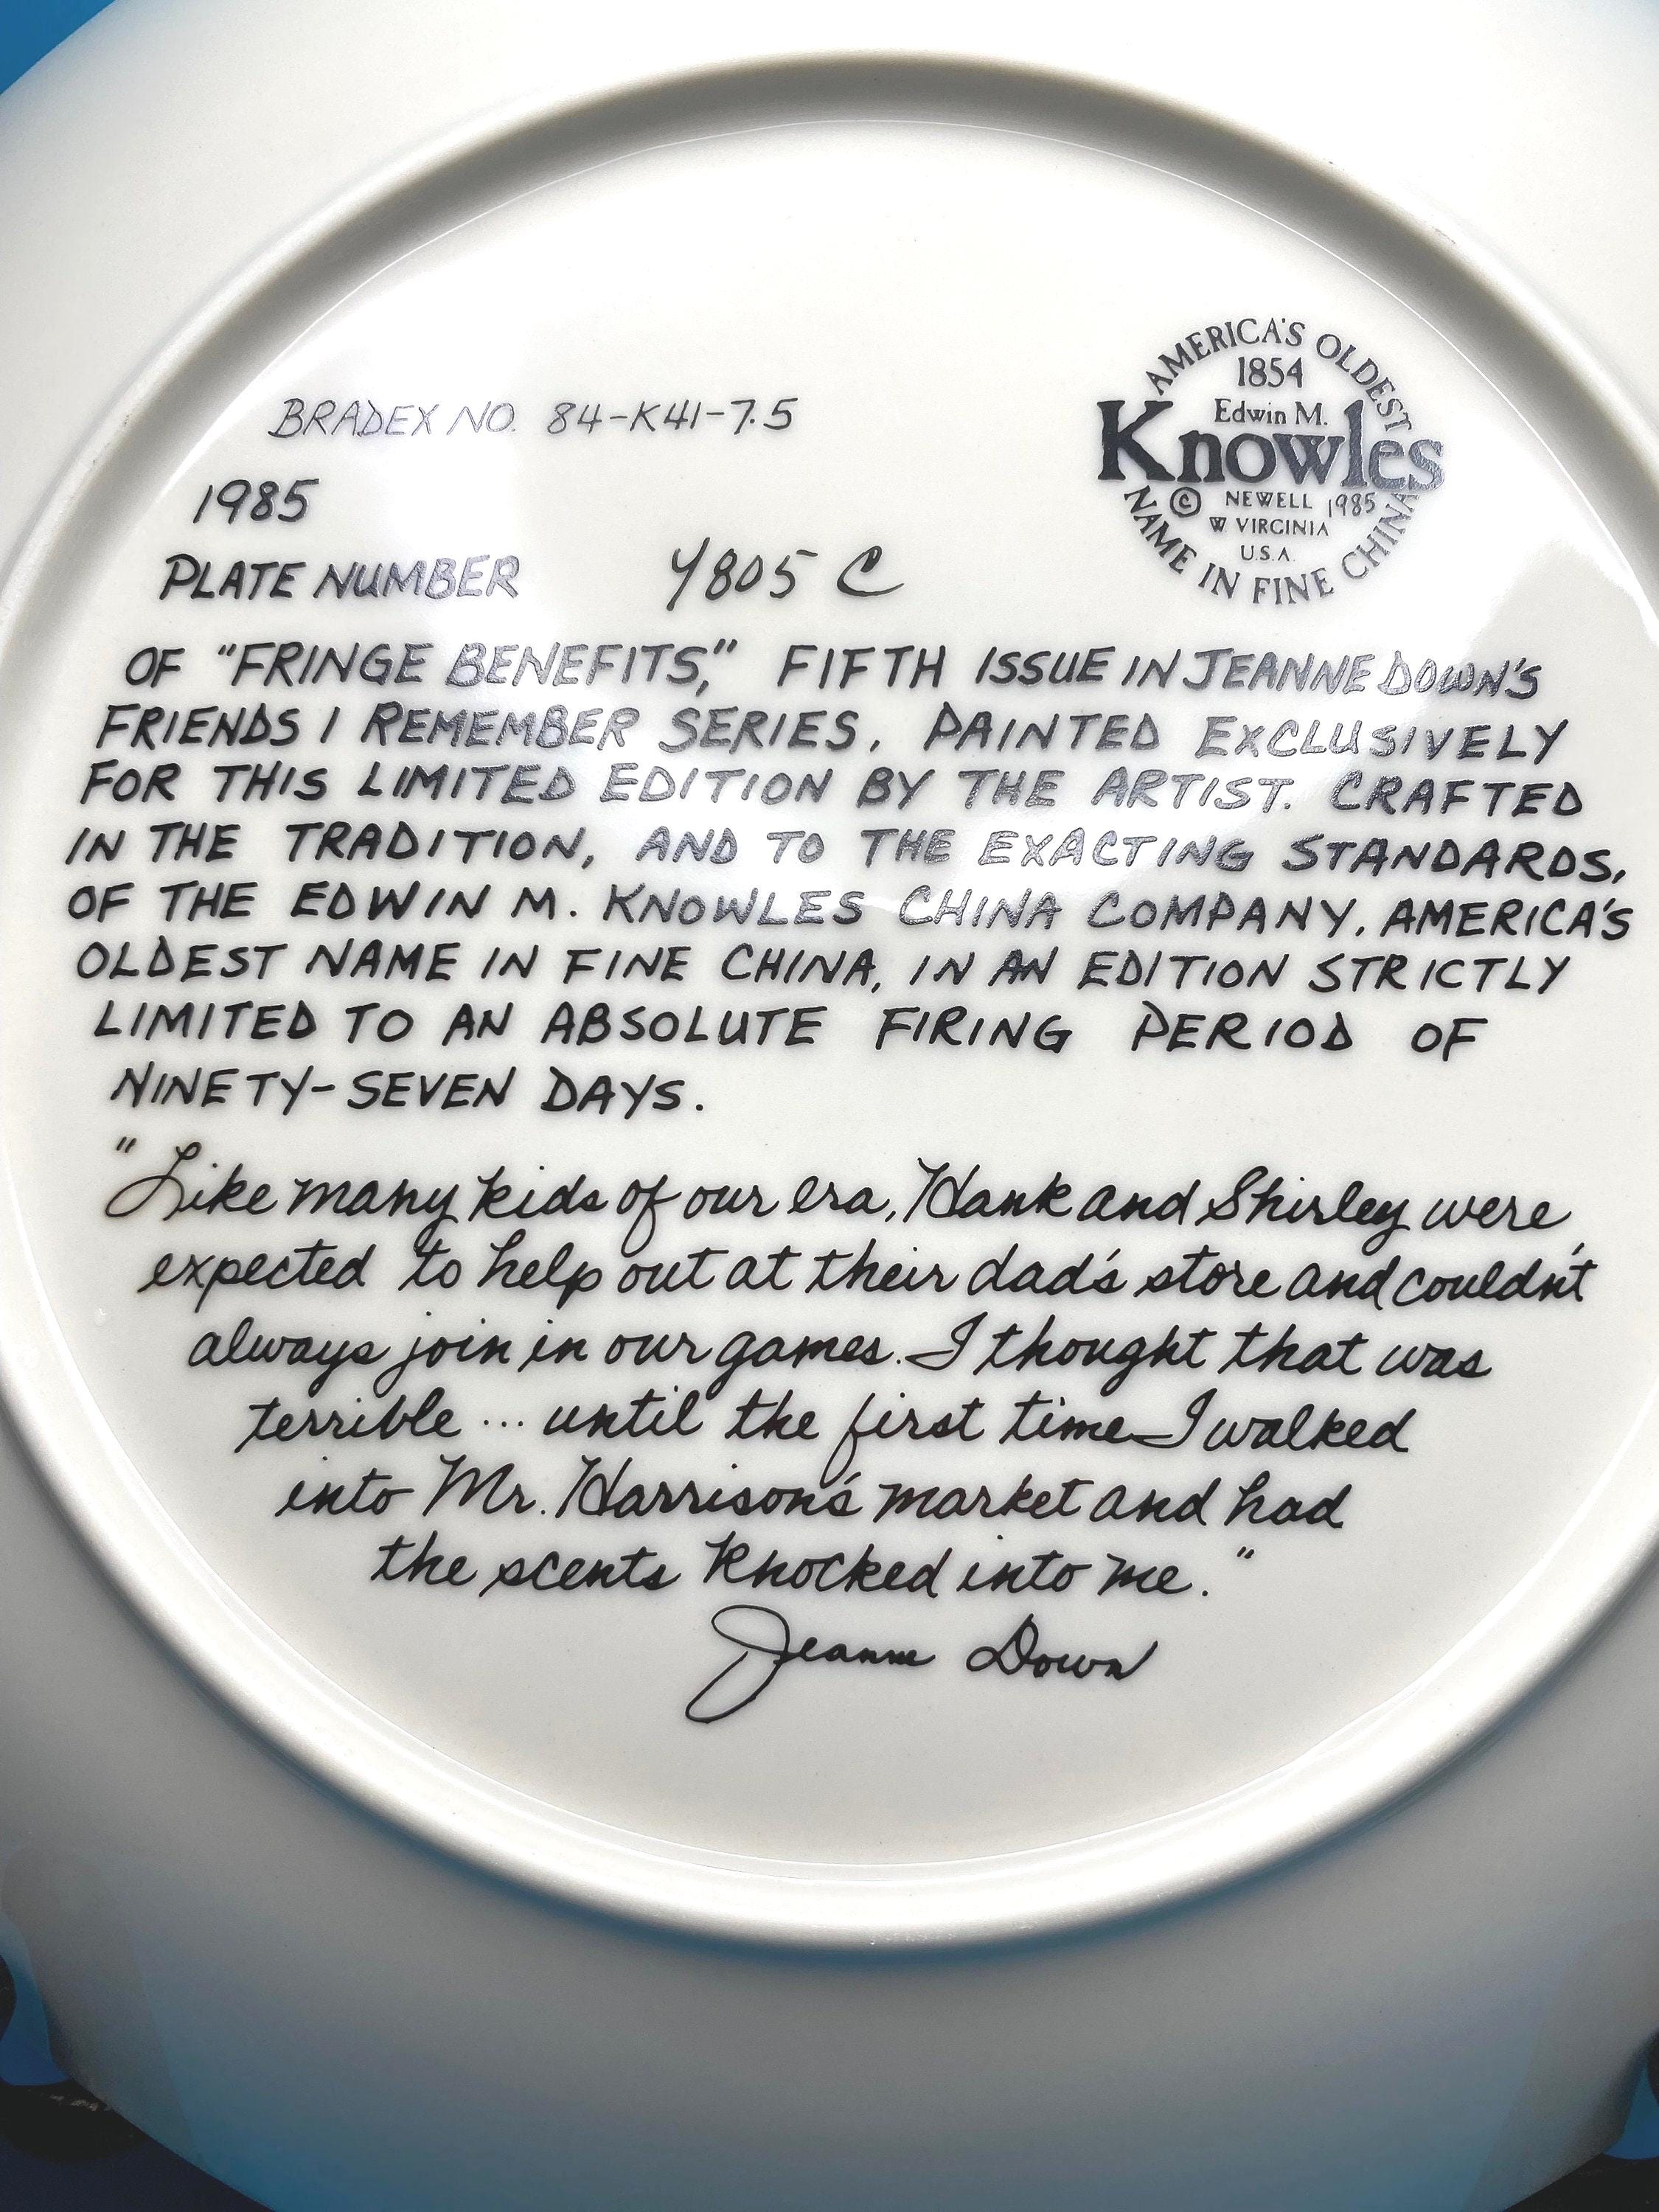 AMERICA'S OLDEST
1854
Edwin M.
Knowles
© NEWELL 1985
W VIRGINIA
U.S.A.
NAME IN FINE CHINA
BRADEX NO. 84-K41-7.5
1985
PLATE NUMBER 4805 C
OF "FRINGE BENEFITS," FIFTH ISSUE IN JEANNE DOWN'S
FRIENDS I REMEMBER SERIES, PAINTED EXCLUSIVELY
FOR THIS LIMITED EDITION BY THE ARTIST. CRAFTED
IN THE TRADITION, AND TO THE EXACTING STANDARDS,
OF THE EDWIN M. KNOWLES CHINA COMPANY, AMERICA'S
OLDEST NAME IN FINE CHINA, IN AN EDITION STRICTLY
LIMITED TO AN ABSOLUTE FIRING PERIOD OF
NINETY-SEVEN DAYS.
"Like many kids of our era, Hank and Shirley were
expected to help out at their dad's store and couldn't
always join in our games. I thought that was
terrible ... until the first time I walked
into Mr. Harrison's market and had
the scents knocked into me."
Jeanne Down